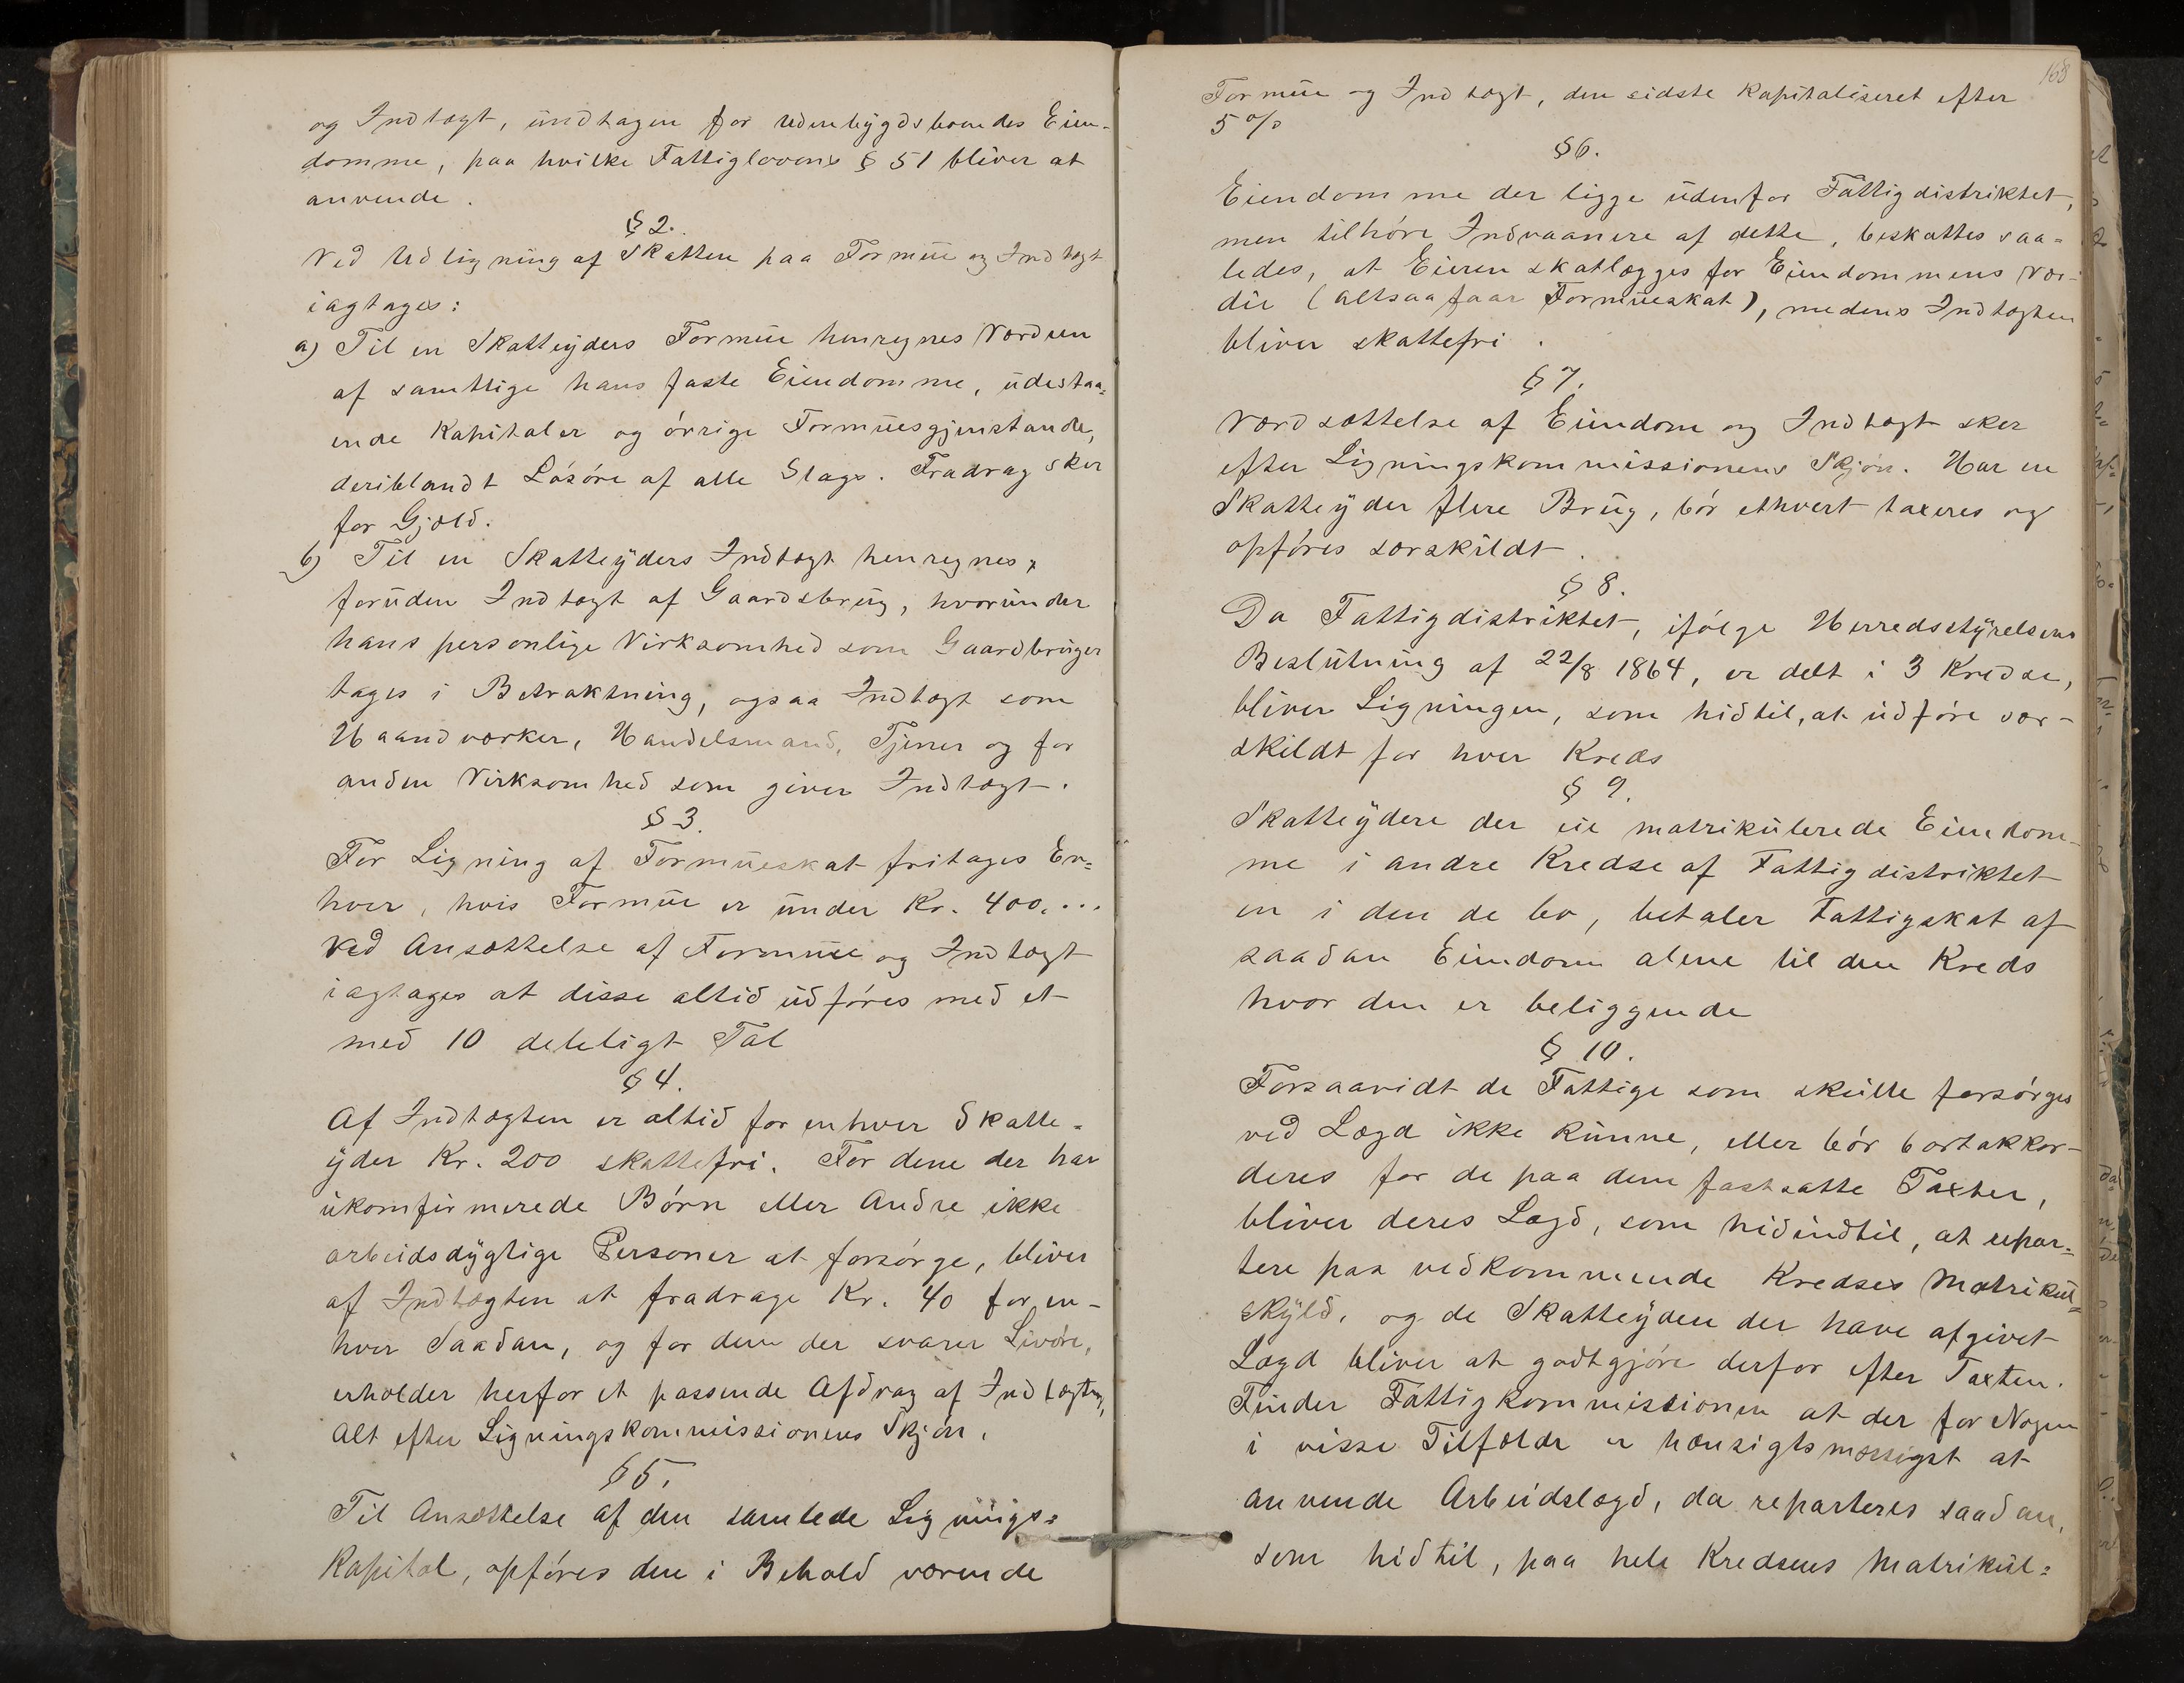 og Indtægt, undtagen for Udenbygdsboendes Eien-
domme, paa hvilke Fattiglovens § 51 bliver at
anvende.
§ 2.
Ved Udligning af Skatten paa Formue og Indtægt
iagtages:
a) Til en Skatteyders Formue henregnes Værdien
af samtlige hans faste Eiendomme, udestaa=
ende Kapitaler og øvrige Formuesgjenstande,
deriblandt Løsøre af alle Slags. Fradrag sker
for Gjæld.
b) Til en Skatteyders Indtægt henregnes,
foruden Indtægt af Gaardsbrug, hvorunder
hans personlige Virksomhed som Gaardbruger
tages i Betraktning, ogsaa Indtægt som
Haandværker, Handelsmand, Tjener og for
anden Virksomhed som giver Indtægt.
§ 3.
For Ligning af Formueskat fritages En=
hver, hvis Formue er under Kr. 400,...
Ved Ansættelse af Formue og Indtægt
iagtages at disse altid udføres med et
med 10 deleligt Tal
§ 4.
Af Indtægten er altid for enhver Skatte=
yder Kr. 200 skattefri. For dem der har
ukomfirmerede Børn eller Andre ikke
arbeidsdygtige Personer at forsørge, bliver
af Indtægten at fradrage Kr. 40 for en-
hver Saadan, og for dem der svarer Livøre,
erholder herfor et passende Afdrag af Indtægten,
Alt efter Ligningskommissionens Skjøn.
§ 5.
Til Ansættelse af den samlede Lignings=
Kapital, opføres den i Behold værende
168
Formue og Indtægt, den sidste Kapitaliseret efter
5 %
§ 6.
Eiendomme der ligge udenfor Fattigdistriktet,
men tilhøre Indvaanere af dette, beskattes saa=
ledes, at Eieren skatlægges for Eiendommens Vær-
die (altsaa faar Formueskat), medens Indtægten
bliver skattefri.
§ 7.
Værdsættelse af Eiendom og Indtægt sker
efter Ligningskommissionens Skjøn. Har en
Skatteyder flere Brug, bør ethvert taxeres og
opføres særskildt.
§ 8.
Da Fattigdistriktet, ifølge Herredsstyrelsens
Beslutning af 22/8 1864, er delt i 3 Kredse,
bliver Ligningen, som hidtil, at udføre sær-
skildt for hver Kreds
§ 9.
Skatteydere der eie matrikulerede Eiendom-
me i andre Kredse af Fattigdistriktet
en i den de bo, betaler Fattigskat af
saadan Eiendom alene til den Kreds
hvor den er beliggende
§ 10.
Forsaavidt de Fattige som skulle forsørges
ved Lægd ikke kunne, eller bør bortakkor-
deres for de paa dem fastsatte Taxter,
bliver deres Lægd, som hidindtil, at repar=
tere paa vedkommende Kredses Matrikul=
skyld, og de Skatteydere der have afgivet
Lægd bliver at godtgjøre derfor efter Taxten.
Finder Fattigkommissionen at der for Nogen
i visse Tilfælde er hensigtsmæssigst at
anvende Arbeidslægd, da reparteres saadan,
som hidtil, paa hele Kredsens Matrikul=